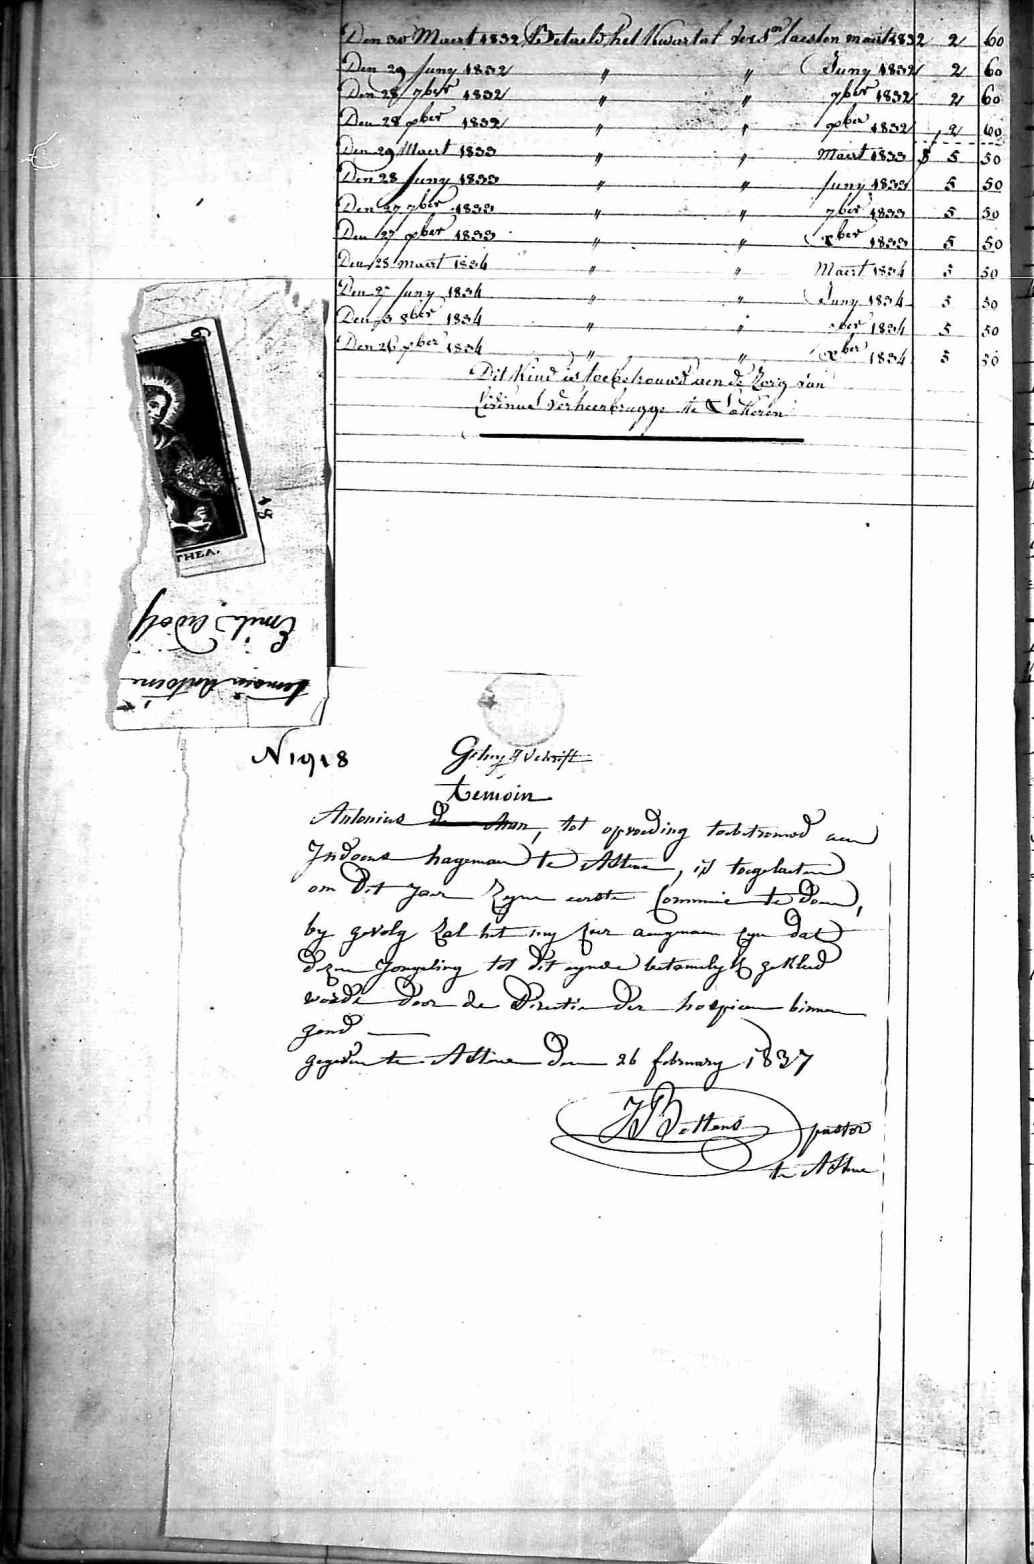 Den 30 Maert 1832 Betaeld het Kwartal verst laesten maert 1832 2 60
Den 29 Juny 1832 " " Juny 1832 2 60
Den 28 7ber 1832 " " 7ber 1832 2 60
Den 28 xber 1832 " " xber 1832 2 60
Den 29 Maert 1833 " " Maert 1833 5 50
Den 28 Juny 1833 " " Juny 1833 5 50
Den 27 7ber 1833 " " 7ber 1833 5 50
Den 27 xber 1833 " " xber 1833 5 50
Den 28 maert 1834 " " Maert 1834 5 50
Den 27 Juny 1834 " " Juny 1834 5 50
Den 3 8ber 1834 " " ber 1834 5 50
Den 26 xber 1834 " " xber 1834 5 50
Dit Kind is toebetrouwd aen de Zorg van
Livinus Verheerbrugge te Lokeren
THEA.
18
Emile Adolf
temoin Antoine
N 1918
temoin
Antonius de , tot opvoeding toebetrouwd aen
Judocus hageman te Astene, is toegelaeten
om dit Jaer Zyne eerste Communie te doen,
by gevolg Zal het my zeer aengenaem zyn dat
dezen Jongeling tot dit eynde betamelyk gekleed
worde door de Directie der hospicen binnen
gend
gegeven te Astene den 26 february 1837
pastor
te Astene